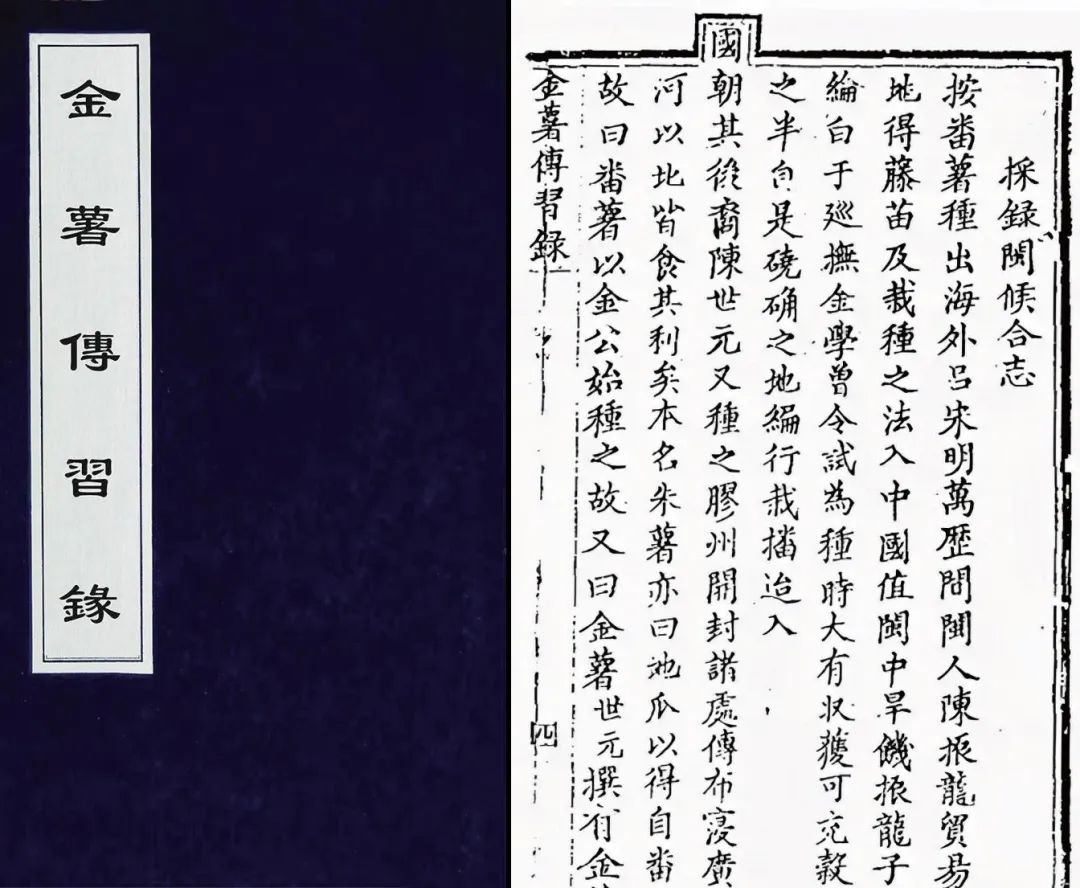 金薯傳習錄
採録閩侯合志
按番薯種出海外吕宋明萬歴間閩人陳振龍貿易
地得藤苗及栽種之法入中國值閩中旱饑振龍子
綸白于廵撫金學曾令試為種時大有収獲可充穀
之半自是磽确之地編行栽播迨入
國朝其後裔陳世元又種之膠州開封諸處傳布寖廣
河以北皆食其利矣本名朱薯亦曰地瓜以得自番
故曰番薯以金公始種之故又曰金薯世元撰有金
金薯傳習録
四